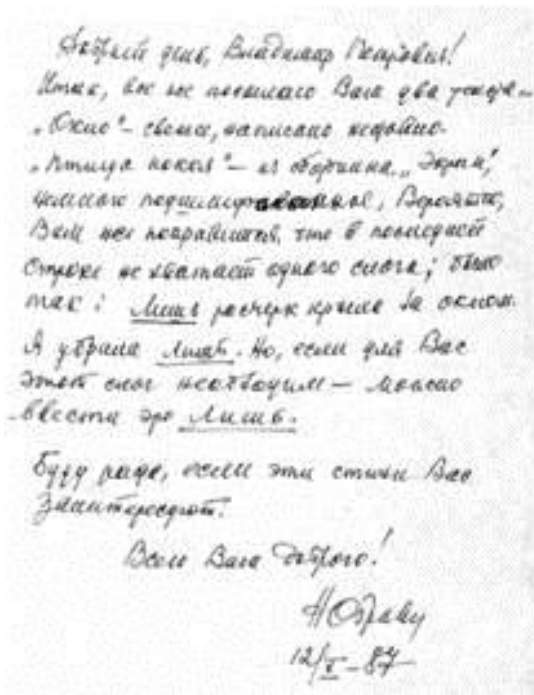 Добрый день, Владимир Петрович!
Итак, все же посылаю Вам два
"Окно" – свежее, написано недавно.
"Птица покоя" – из сборника "Экран",
немного подшлифованное, Вероятно,
Вам не понравится, что в последней
строке не хватает одного слога; было
так: Лишь росчерк крыла за окном.
Я убрала Лишь. Но, если для Вас
этот слог необходим – можно
ввести это Лишь.
Буду рада, если эти стихи Вас
заинтересуют.
Всего Вам доброго!
12/V–87